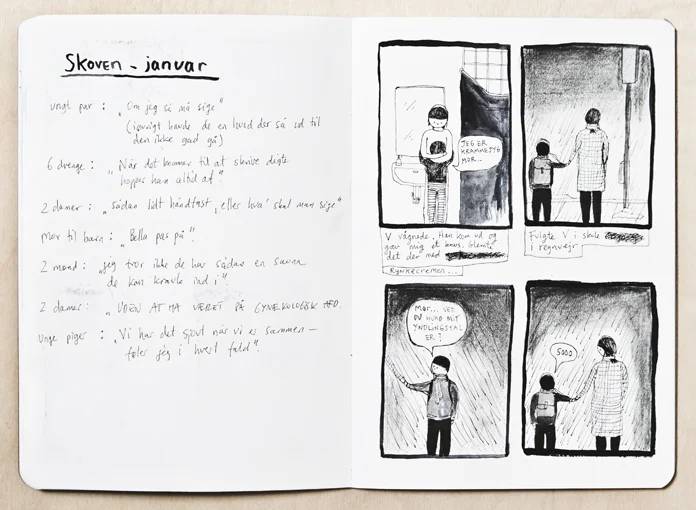 Skoven - januar
ungt par : "Om jeg så må sige"
(iøvrigt havde de en hund der så ud til
den ikke gad gå)
6 drenge : "Når det kommer til at skrive digte
hopper han altid af."
2 damer : "sådan lidt håndfast, eller hva' skal man sige"
mor til barn : "Bella pas på".
2 mænd : "jeg tror ikke de har sådan en
de kan kravle ind i"
2 damer : "UDEN AT HA VÆRET PÅ GYNÆKOLOGISK AFD.
Unge piger : "Vi har det sjovt når vi er sammen –
føler jeg i hvert fald".
JEG ER
KRAMMESYG
MOR...
V vågnede. Han kom ud og
gav mig et knus. Glemte
det der med
RYNKECREMEN...
Fulgte V i skole
i regnvejr
MOR... VED
DU HVAD MIT
YNDLINGSTAL
ER?
5000